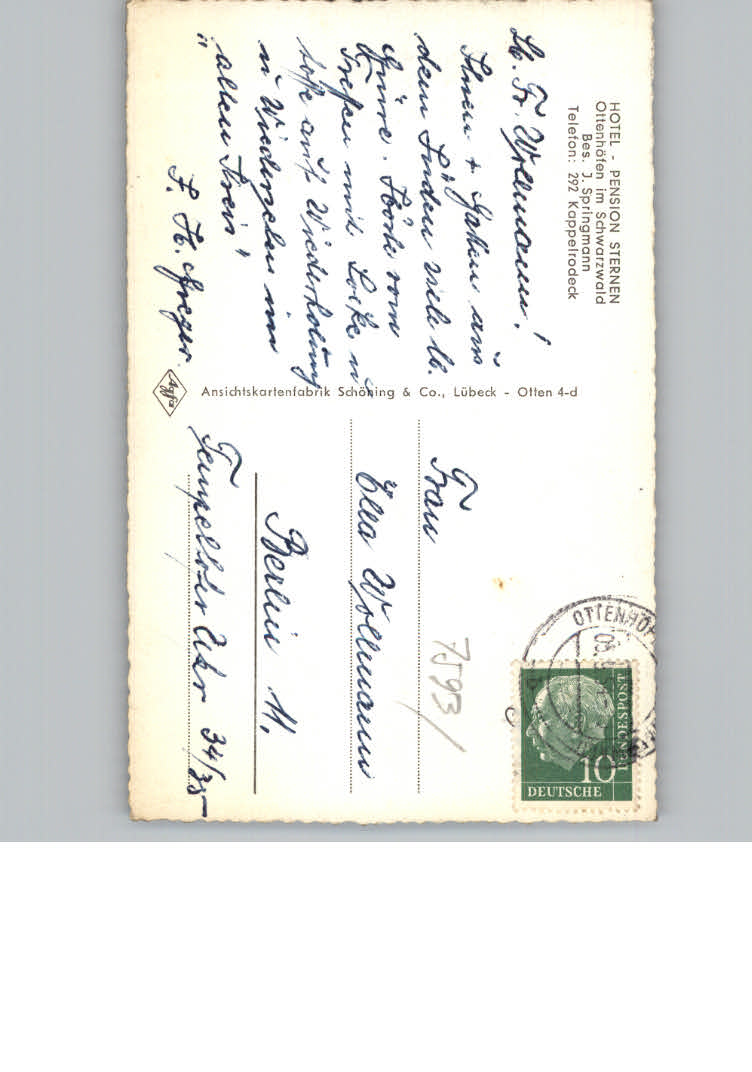 HOTEL - PENSION STERNEN
Ottenhöfen im Schwarzwald
Bes. J. Springmann
Telefon: 292 Kappelrodeck
Lb. Fr. Wollmann!
Ihnen + aus
dem Süden viele lb.
Grüße. Hörte vom
Treffen mit Locke u
hoffe auf Wiederholung
u Wiedersehen im
"alten Kreis"
F. H.
Agfa
Ansichtskartenfabrik Schöning & Co., Lübeck - Otten 4-d
Frau
Ella Wollmann
Berlin 11,
Tempelhofer Ufer 34/35
7593/
OTTENHÖF
10
DEUTSCHE
BUNDESPOST